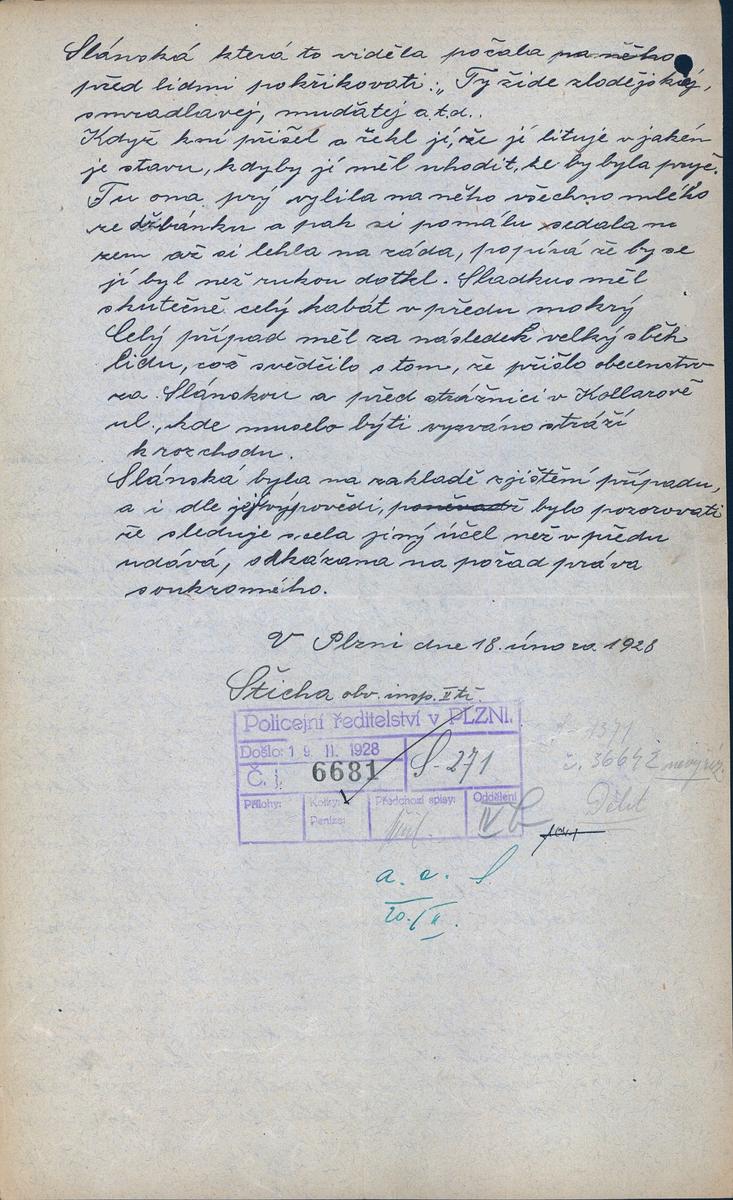 Slánská která to viděla počala na něho
před lidmi pokřikovati: „Ty žide zlodějskej,
smradlavej, mudátej a.t.d..
Když k ní přišel a řekl jí, že jí lituje v jakém
je stavu, kdyby jí měl uhodit, že by byla pryč.
Tu ona prý vylila na něho všechno mléko
ze džbánku a pak si pomálu sedala na
zem až si lehla na záda, popírá že by se
jí byl než rukou dotkl. Sladkus měl
skutečně celý kabát v předu mokrý
Celý případ měl za následek velký sběh
lidu, což svědčilo o tom, že přišlo obecenstvo
za Slánskou a před strážnici v Kollarově
ul., kde muselo býti vyzváno stráží
k rozchodu.
Slánská byla na zakladě zjištění případu,
a i dle její výpovědi, poněvadž bylo pozorovati
že sleduje scela jiný účel než v předu
udává, odkázana na pořad práva
soukromého.
V Plzni dne 18. února 1928
Šticha obv. insp. II tř.
Policejní ředitelství v PLZNI.
Došlo: 19. II. 1928
Č. j. 6681
S-271
Přílohy:
Kolky:
Peníze:
Předchozí spisy:
Oddělení
IV
č. 36642
a. a. S
20./II.